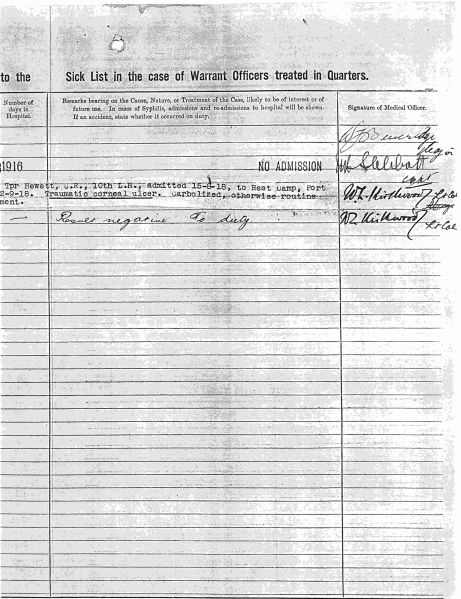 to the Sick List in the case of Warrant Officers treated in Quarters.
Number of
days in
Hospital.
Remarks bearing on the Cause, Nature, or Treatment of the Case, likely to be of interest or of
future use. In cases of Syphilis, admissions and re-admissions to hospital will be shown.
If an accident, state whether it occurred on duty.
Signature of Medical Officer.
Major
1916 NO ADMISSION
Capt
Tpr Hewett, J.R., 10th L.H., admitted 15-6-18, to Rest Camp, Port
2-9-18. Traumatic corneal ulcer. Carbolized, otherwise routine
ment.
W.L. Kirkwood Lt Col
— negative To duty W.L. Kirkwood Lt Col